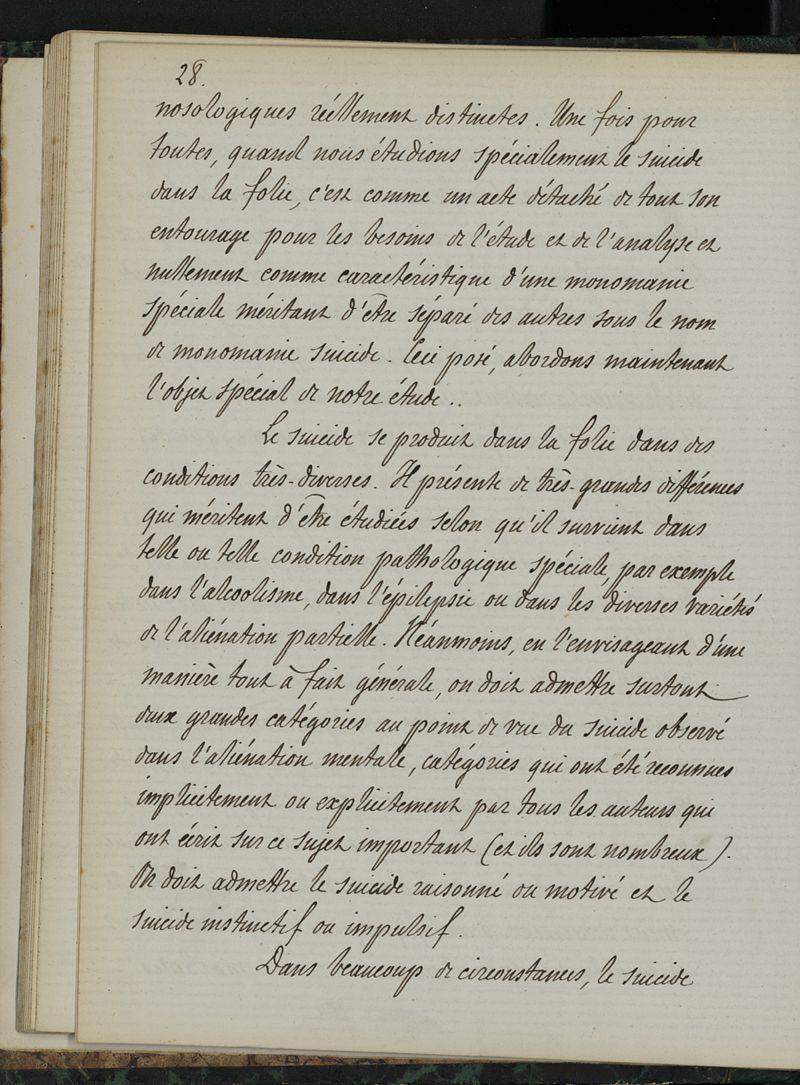 28.
nosologiques réellement distinctes. Une fois pour
toutes, quand nous étudions spécialement le suicide
dans la folie, c'est comme un acte détaché de tout son
entourage pour les besoins de l'étude et de l'analyse et
nullement comme caractéristique d'une monomanie
spéciale méritant d'être séparé des autres sous le nom
de monomanie suicide. Ceci posé, abordons maintenant
l'objet spécial de notre étude..
Le suicide se produit dans la folie dans des
conditions très-diverses. Il présente de très-grandes différences
qui méritent d'être étudiées selon qu'il survient dans
telle ou telle condition pathologique spéciale, par exemple
dans l'alcoolisme, dans l'épilepsie ou dans les diverses variétés
de l'aliénation partielle. Néanmoins, en l'envisageant d'une
manière tout à fait générale, on doit admettre surtout
deux grandes catégories au point de vue du suicide observé
dans l'aliénation mentale, catégories qui ont été reconnues
implicitement ou explicitement par tous les auteurs qui
ont écrit sur ce sujet important (et ils sont nombreux).
On doit admettre le suicide raisonné ou motivé et le
suicide instinctif ou impulsif.
Dans beaucoup de circonstances, le suicide